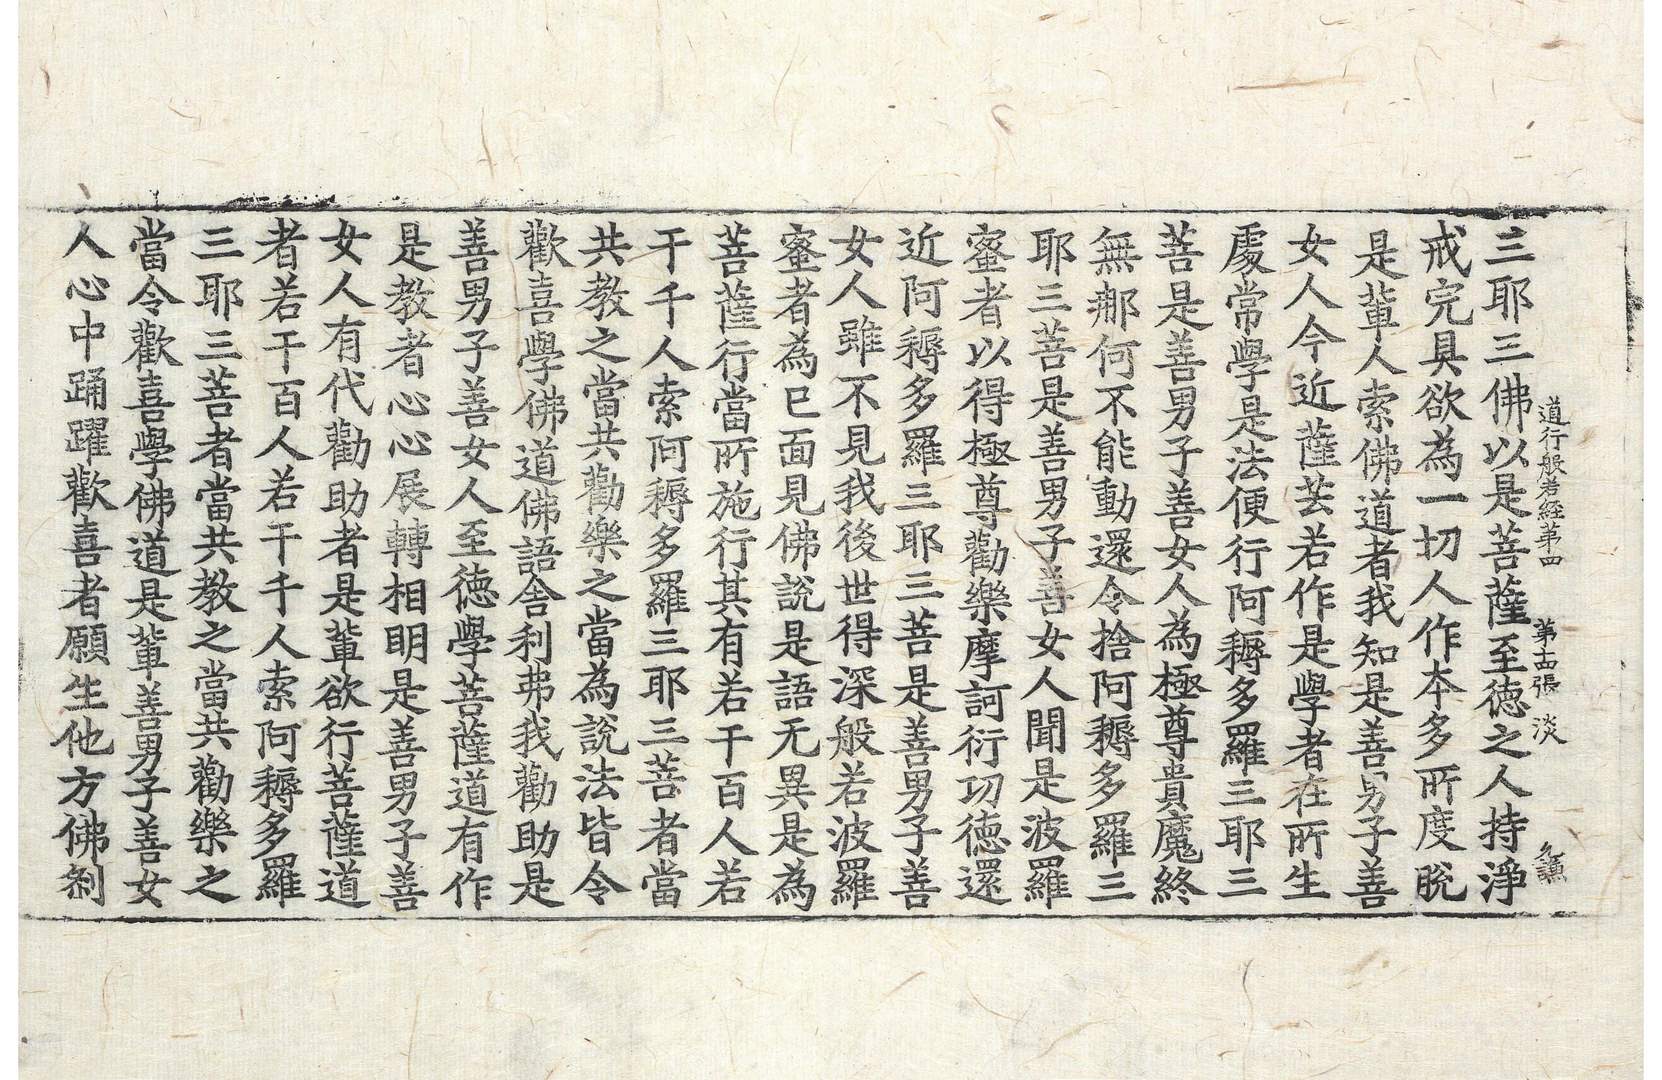 道行般若經第四 第古張 淡
三耶三佛以是菩薩至德之人持淨
戒完具欲為一切人作本多所度脫
是輩人索佛道者我知是善男子善
女人今近薩芸若作是學者在所生
處常學是法便行阿耨多羅三耶三
菩是善男子善女人為極尊貴魔終
無那何不能動還令捨阿耨多羅三
耶三菩是善男子善女人聞是波羅
蜜者以得極尊勸樂摩訶衍功德還
近阿耨多羅三耶三菩是善男子善
女人雖不見我後世得深般若波羅
蜜者為已面見佛說是語无異是為
菩薩行當所施行其有若干百人若
干千人索阿耨多羅三耶三菩者當
共教之當共勸樂之當為說法皆令
歡喜學佛道佛語舍利弗我勸助是
善男子善女人至德學菩薩道有作
是教者心心展轉相明是善男子善
女人有代勸助者是輩欲行菩薩道
者若干百人若干千人索阿耨多羅
三耶三菩者當共教之當共勸樂之
當令歡喜學佛道是輩善男子善女
人心中踊躍歡喜者願生他方佛剎